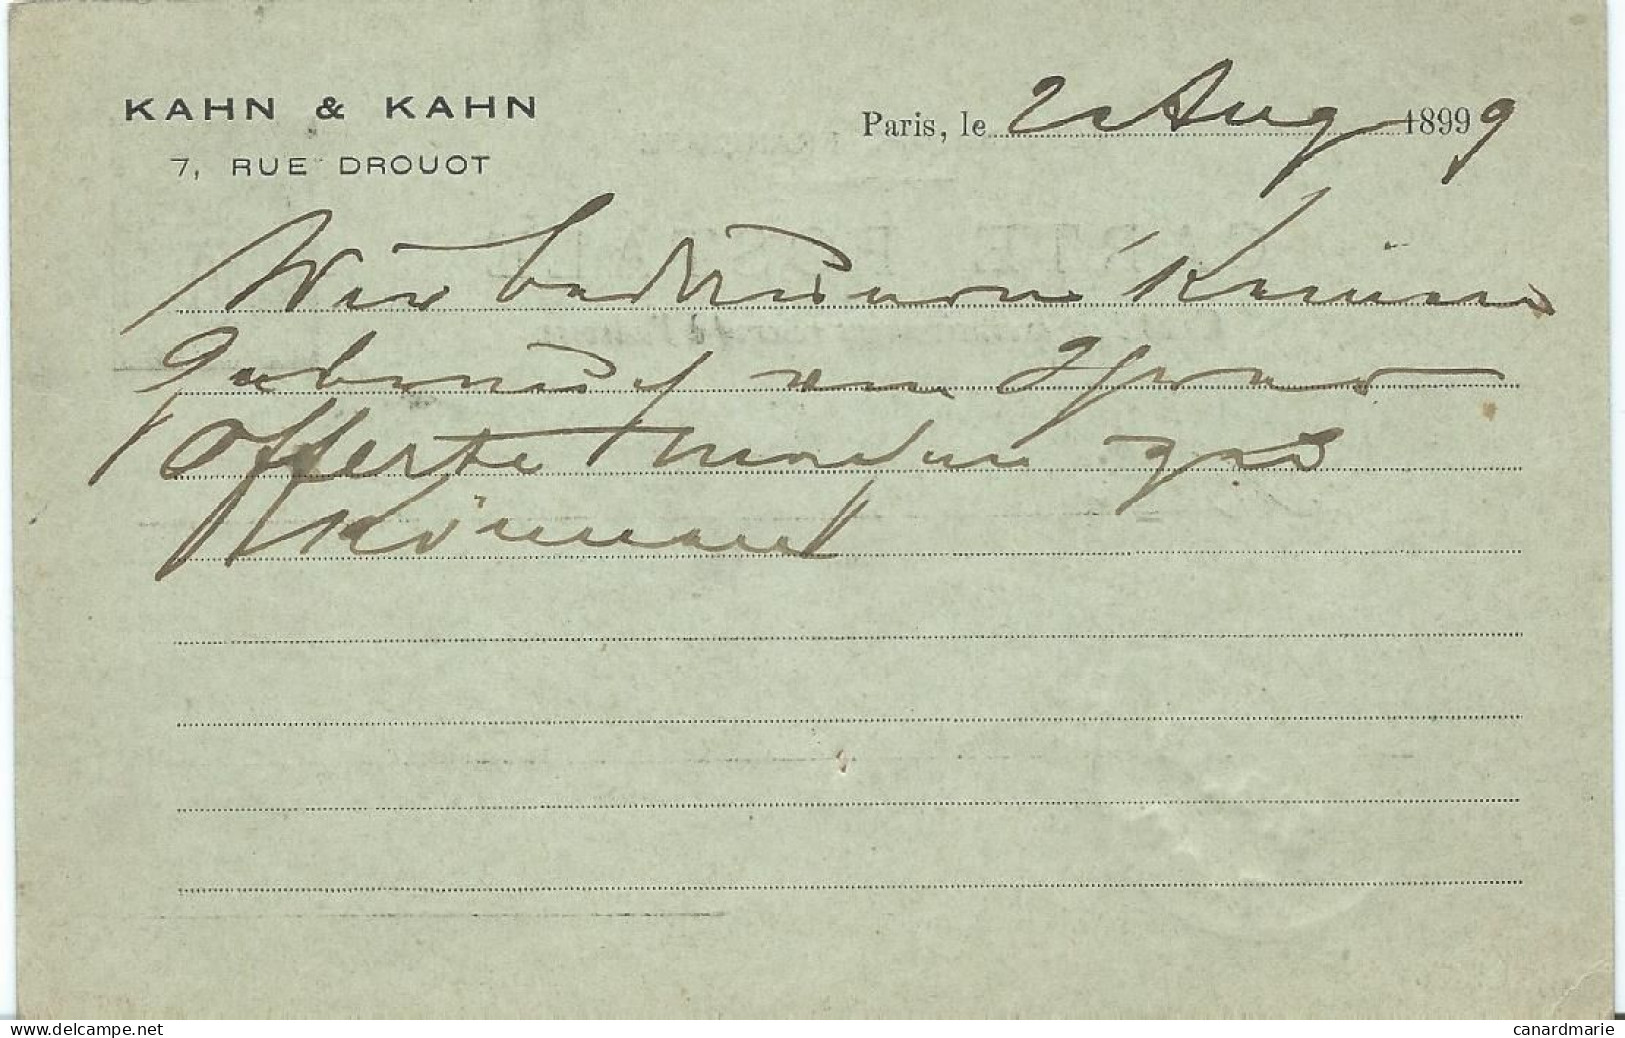 KAHN & KAHN
7, RUE DROUOT
Paris, le 2 Aug 1899 9
Wir bedauern keinen
Gebrauch von Ihrer
Offerte machen zu
können
www.delcampe.net
canardmarie